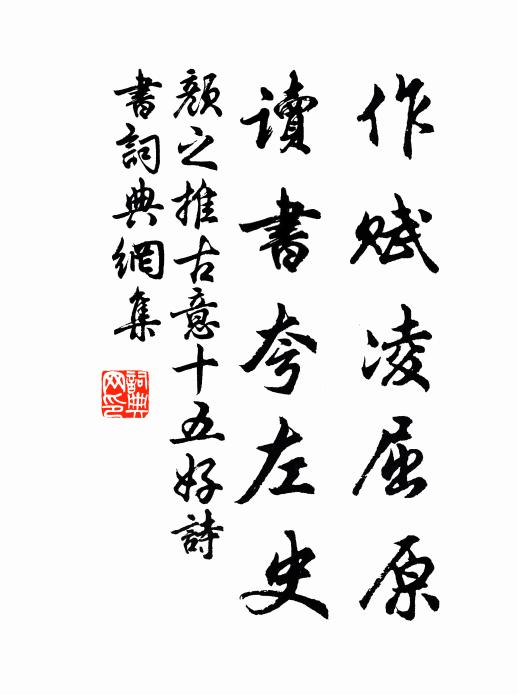 作賦凌屈原
讀書夸左史
顏之推古意十五好詩
書詞典網集
詞典
网印